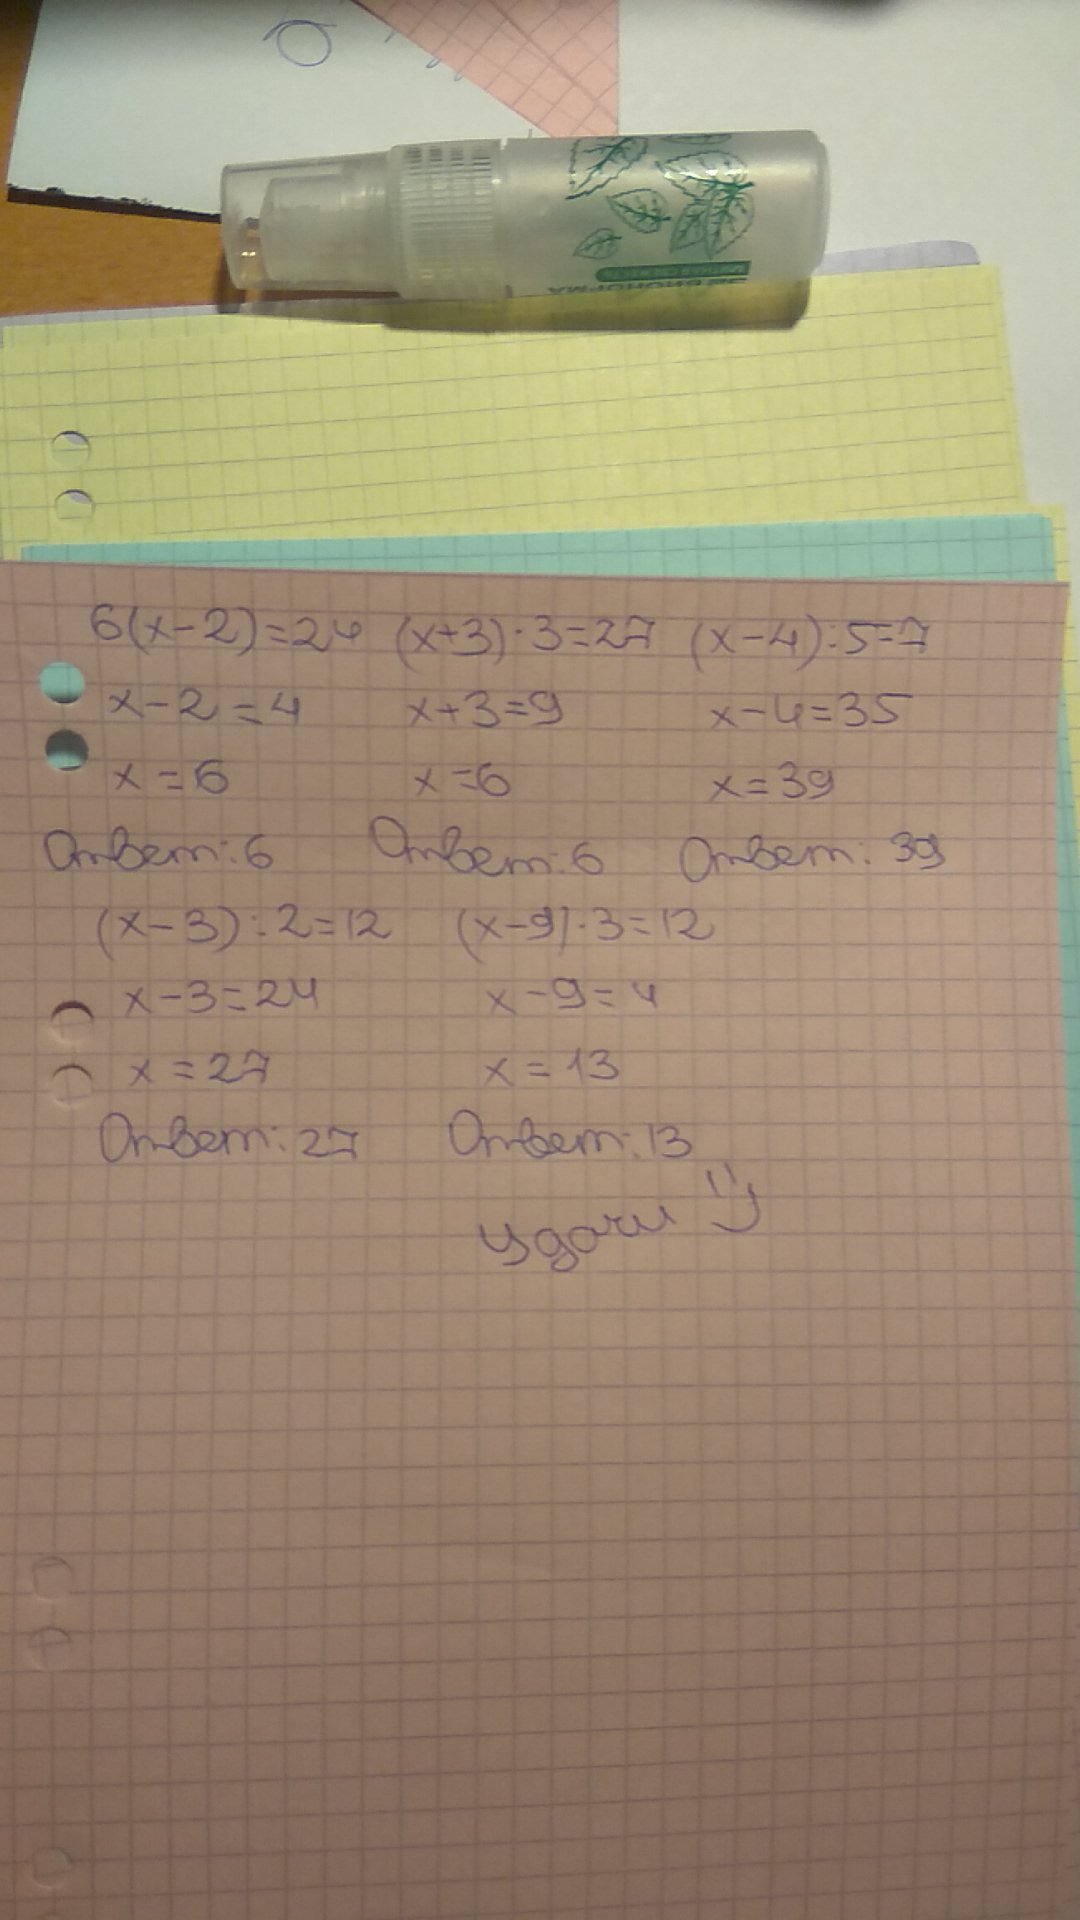 МЯТНАЯ СВЕЖЕСТЬ
6(x-2)=24 (x+3)·3=27 (x-4):5=7
x-2=4 x+3=9 x-4=35
x=6 x=6 x=39
Ответ: 6 Ответ: 6 Ответ: 39
(x-3):2=12 (x-9)·3=12
x-3=24 x-9=4
x=27 x=13
Ответ: 27 Ответ: 13
Удачи :)